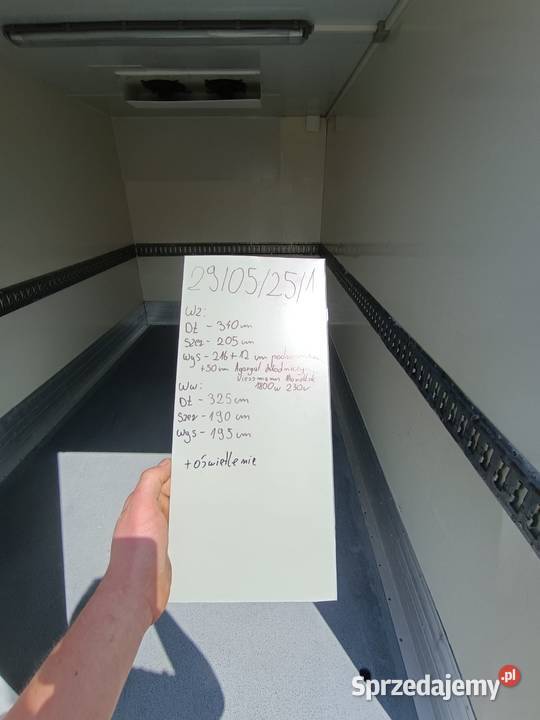 29/05/25/1
Wz:
Dł - 340 cm
Szer - 205 cm
Wys - 216 + 12 cm
+ 50 cm Agregat chłodniczy
Viessmann
1800w 230v
Ww:
Dł - 325 cm
Szer - 190 cm
Wys - 195 cm
+ Oświetlenie
Sprzedajemy.pl